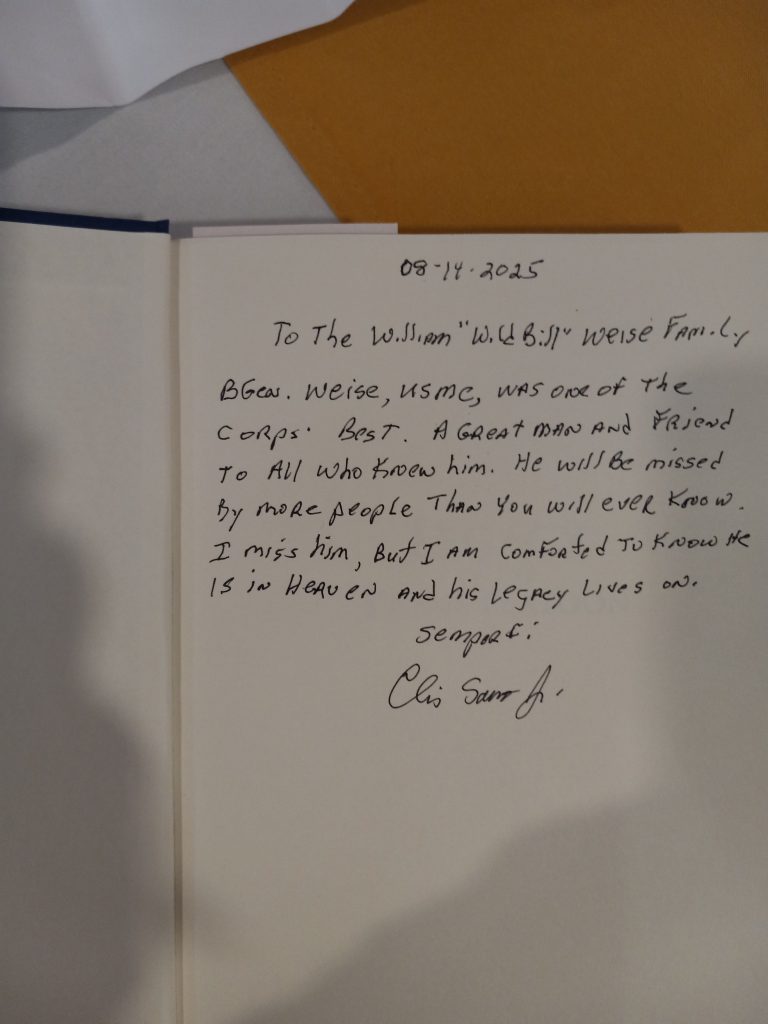 08-14-2025
To The William "Wild Bill" Weise Family
BGen. Weise, USMC, was one of the
Corps' Best. A Great man and Friend
To All who Knew him. He will Be missed
By more people Than You will ever Know.
I miss him, But I am comforted To Know He
Is in Heaven and his Legacy Lives on.
Semper fi
Jr.